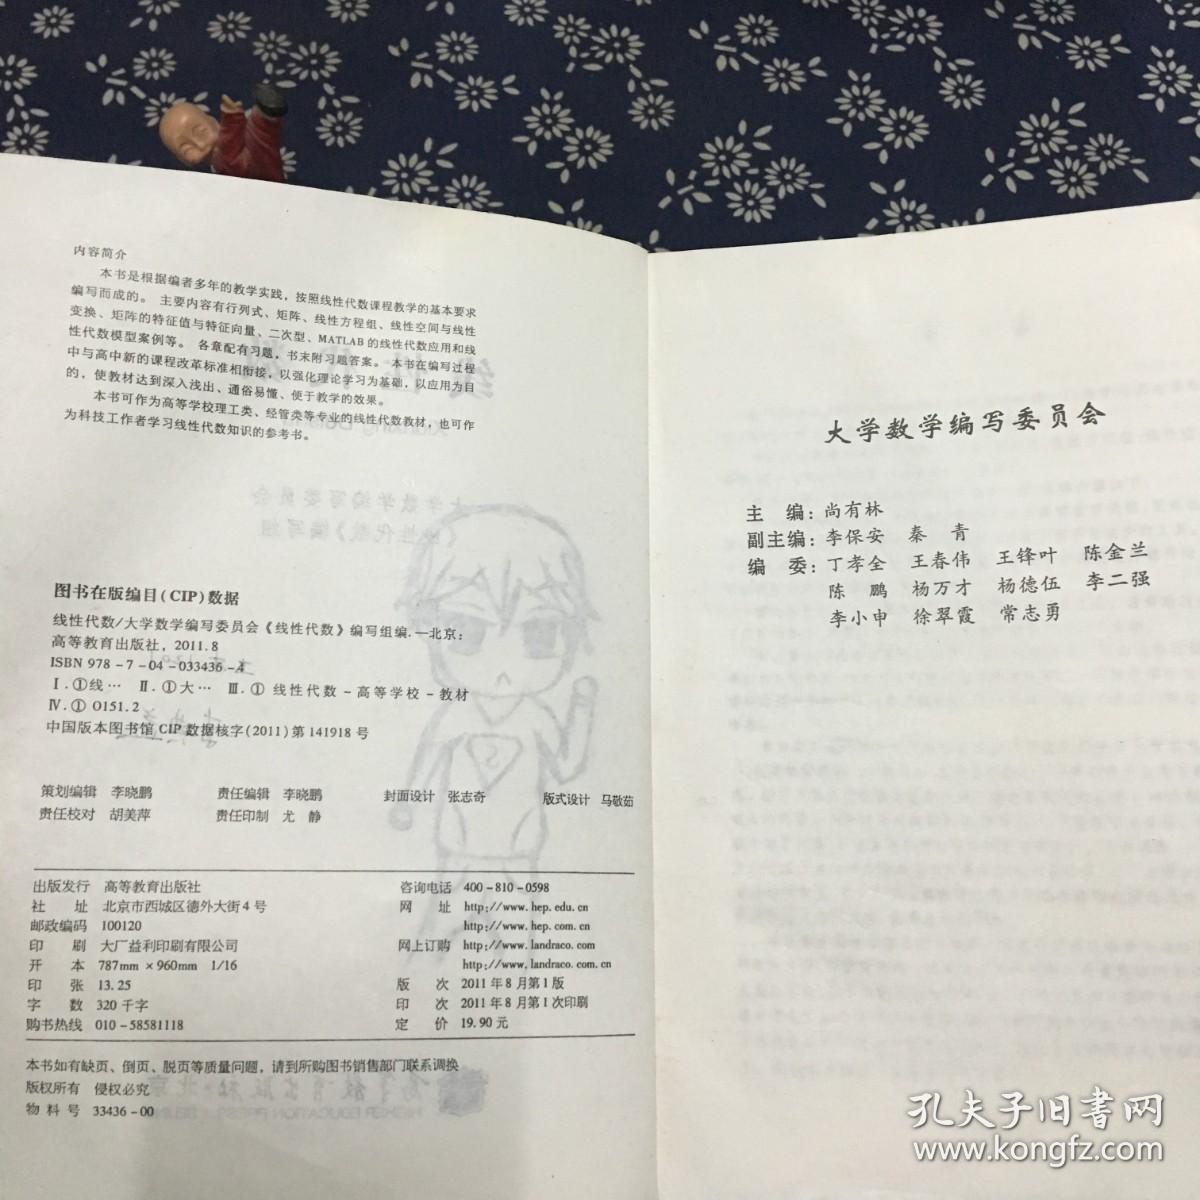 内容简介
本书是根据编者多年的教学实践，按照线性代数课程教学的基本要求
编写而成的。 主要内容有行列式、矩阵、线性方程组、线性空间与线性
变换、矩阵的特征值与特征向量、二次型、MATLAB 的线性代数应用和线
性代数模型案例等。 各章配有习题，书末附习题答案。 本书在编写过程
中与高中新的课程改革标准相衔接，以强化理论学习为基础，以应用为目
的，使教材达到深入浅出、通俗易懂、便于教学的效果。
本书可作为高等学校理工类、经管类等专业的线性代数教材，也可作
为科技工作者学习线性代数知识的参考书。
图书在版编目(CIP)数据
线性代数/大学数学编写委员会《线性代数》编写组编.—北京：
高等教育出版社，2011.8
ISBN 978-7-04-033436-4
Ⅰ.①线… Ⅱ.①大… Ⅲ.① 线性代数-高等学校-教材
Ⅳ.① O151.2
中国版本图书馆 CIP 数据核字(2011)第 141918 号
策划编辑 李晓鹏 责任编辑 李晓鹏 封面设计 张志奇 版式设计 马敬茹
责任校对 胡美萍 责任印制 尤 静
出版发行 高等教育出版社
社 址 北京市西城区德外大街4号
邮政编码 100120
印 刷 大厂益利印刷有限公司
开 本 787mm×960mm 1/16
印 张 13.25
字 数 320千字
购书热线 010-58581118
咨询电话 400-810-0598
网 址 http://www.hep.edu.cn
http://www.hep.com.cn
网上订购 http://www.landraco.com
http://www.landraco.com.cn
版 次 2011年8月第1版
印 次 2011年8月第1次印刷
定 价 19.90元
本书如有缺页、倒页、脱页等质量问题，请到所购图书销售部门联系调换
版权所有 侵权必究
物 料 号 33436-00
大学数学编写委员会
主 编：尚有林
副主编：李保安 秦 青
编 委：丁孝全 王春伟 王锋叶 陈金兰
陈 鹏 杨万才 杨德伍 李二强
李小申 徐翠霞 常志勇
孔夫子旧书网
www.kongfz.com